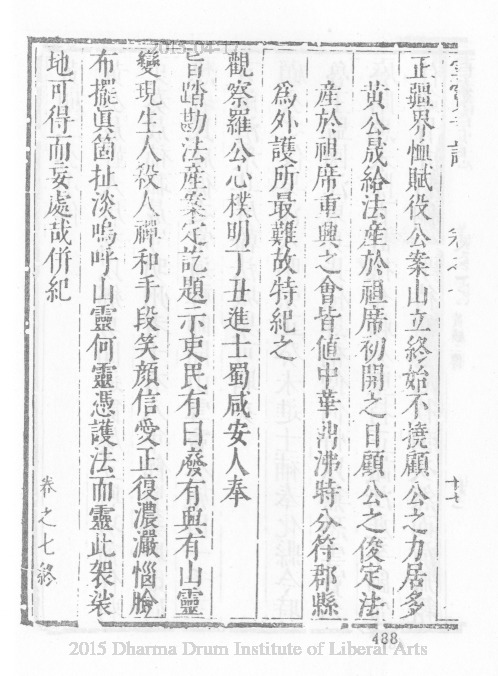 正疆界恤賦役公案山立終始不撓顧公之力居多
黃公晟給法產於祖席初開之日顧公之俊定法
產於祖席重興之會皆値中華沸時分符郡縣
爲外護所最難故特紀之
觀察羅公心樸明丁丑進士蜀咸安人奉
旨踏勘法產案定訖題示吏民有曰廢有與有山靈
變現生人役人禪和手段笑顏信愛正復濃灑惱臉
布擺眞箇扯淡嗚呼山靈何靈憑護法而靈此袈裟
地可得而妄處哉併紀
卷之七終
488
2015 Dharma Drum Institute of Liberal Arts